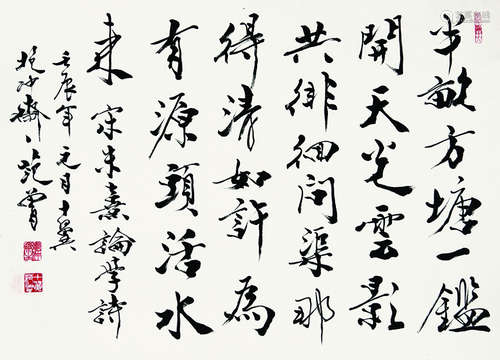 半畝方塘一鑑
開天光雲影
共徘徊問渠那
得清如許為
有源頭活水
来 宋朱熹論學詩
壬辰年元月十翼
抱冲齋 范曾